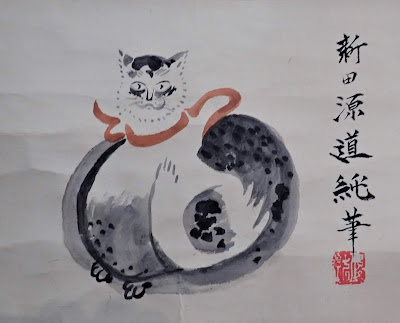 新田源道純筆